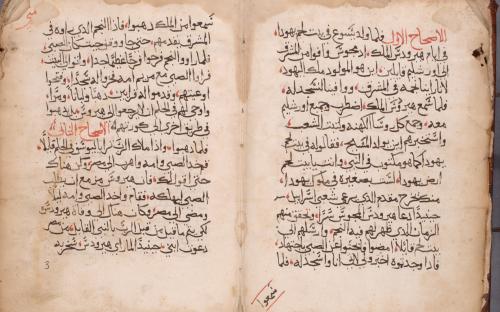 الاصحاح الاول فلما ولد يسوع في بيت لحم يهودا
في ايام هيرودس الملك اذ مجوس وافوا من المشرق
الى اورشليم قايلين اين هو المولود ملك اليهود
لاننا راينا نجمه في المشرق ووافينا لنسجد له
فلما سمع هيرودس الملك اضطرب وجميع اورشليم
معه وجمع كل روسا الكهنة وكتبة الشعب
واستخبرهم اين يولد المسيح فقالوا له في بيت لحم
يهودا كما هو مكتوب في النبي وانت يا بيت لحم
ارض يهودا لست بصغيره في ملوك يهودا
منك يخرج مقدم الذي يرعى شعبي اسراييل
حينيذ دعا هيرودس المجوس سرا وتحقق منهم
الزمان الذي ظهر لهم فيه النجم وارسلهم الى
بيت لحم قايلا امضوا وابحثوا عن الصبي باجتهاد
فاذا وجدتموه اخبروني لاتي انا واسجد له فلما
سمعوا
سمعوا من الملك ذهبوا واذا النجم الذي راوه في
المشرق يقدمهم حتى جا ووقف حيث كان الصبي
فلما راوا النجم فرحوا فرحا عظيما جدا واتوا الى البيت
فراوا الصبي مع مريم امه فخروا له سجدا وفتحوا
اوعيتهم وقدموا له قرابين ذهبا ولبانا ومرا
واوحي لهم في الحلم ان لا يرجعوا الى هيرودس
في طريق اخرى الى كورتهم الاصحاح الثاني
فلما ذهبوا واذا ملاك الرب ترايا ليوسف في الحلم قايلا
قم خذ الصبي وامه واهرب الى مصر وكن هناك
حتى اقول لك فان هيرودس مزمع ان يطلب
الصبي ليهلكه فقام واخذ الصبي وامه ليلا
ومضى الى مصر وكان هناك الى وفاة هيرودس
لكي يتم ما قيل من قبل الرب بالنبي القايل من مصر
دعوت ابني حينيذ لما راى هيرودس
3